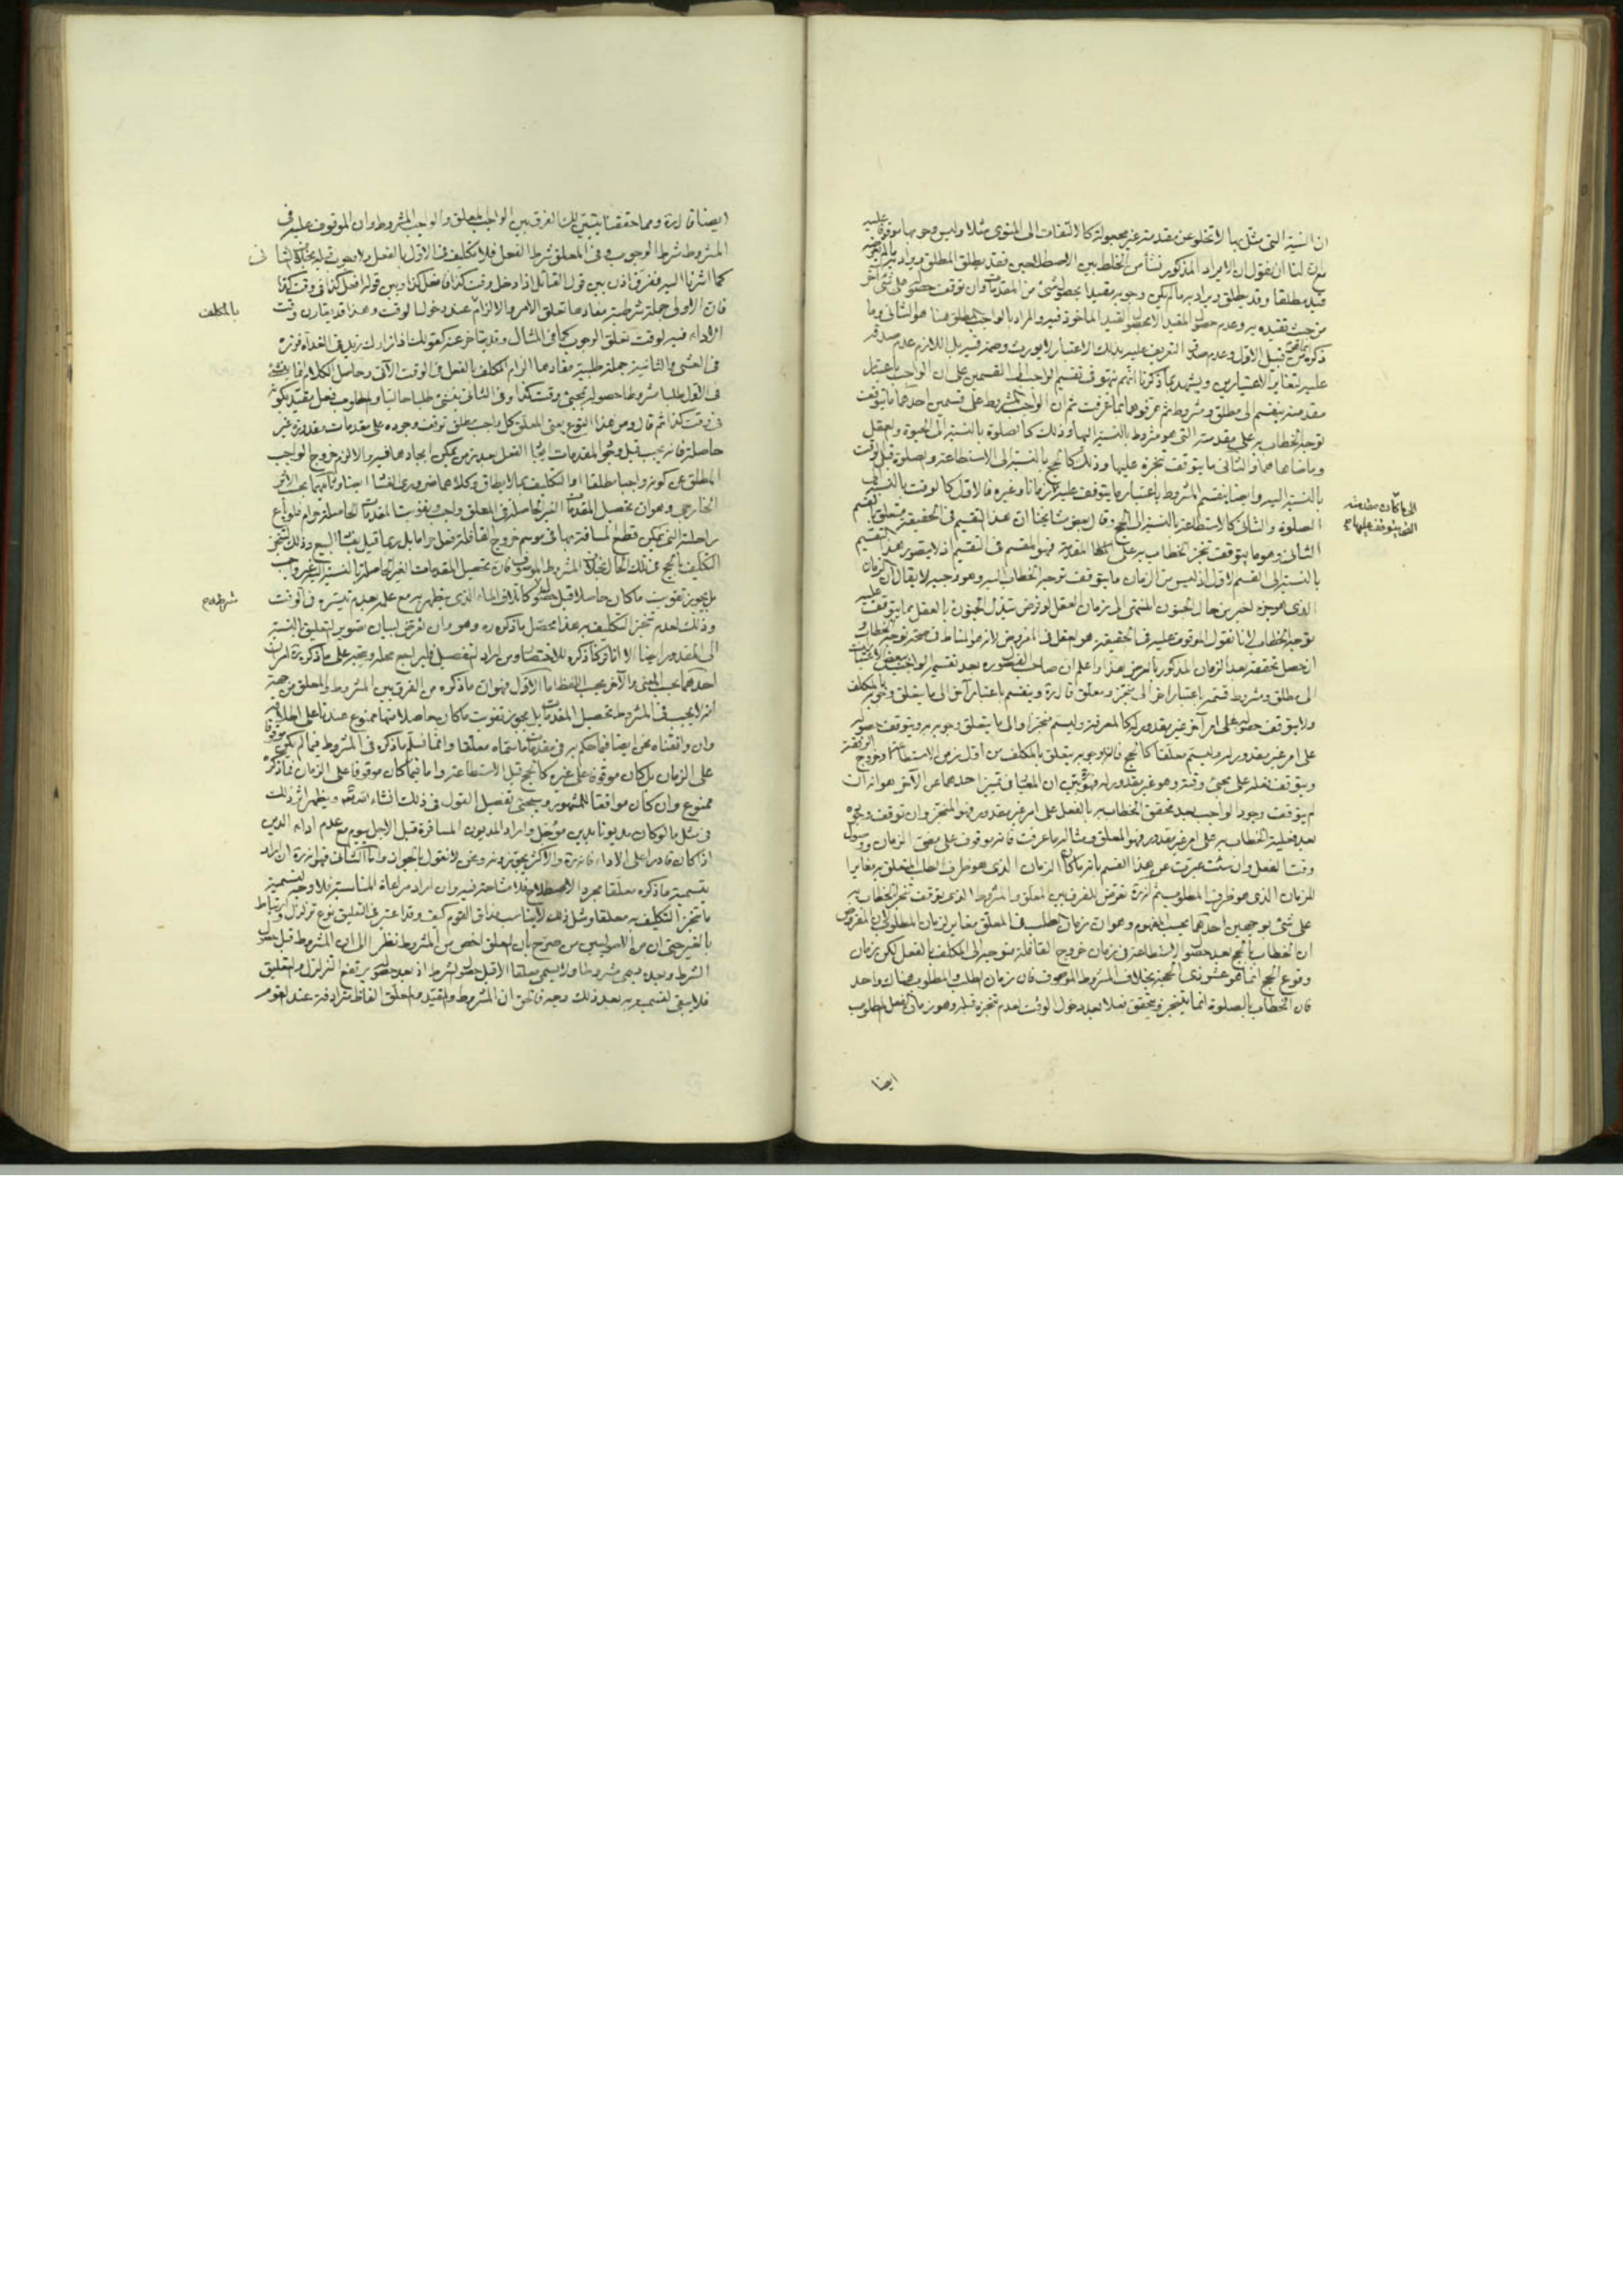 ان النية التي مثل بها لا تخلو عن مقدمة غير مجعولة كالالتفات الى المنوى مثلا وليس وجوبها موقوفا عليه
لنا ان نقول ان الايراد المذكور نشأ من الخلط بين الاصطلاحين فقد يطلق المطلق ويراد به
قيد مطلقا وقد يطلق ويراد به ما لم يكن وجوبه مقيدا بحصول شئ من المقدمات وان توقف حصوله على شئ آخر
من حيث تقييده به وعدم حصول المقيد الا بحصول القيد الماخوذ فيه والمراد بالواجب المطلق هنا هو الثاني وما
ذكره من قبيل الاول وعدم صدق التعريف عليه بذلك الاعتبار لا يورث وصمة فيه بل اللازم عدم صدقه
عليه لتغاير الاعتبارين ويشهد بما ذكرنا انهم نبهوا في تقسيم الواجب الى القسمين على ان الواجب باعتبار
مقدمته ينقسم الى مطلق ومشروط ثم عرفوهما بما عرفت ثم ان الواجب المشروط على قسمين احدهما ما يتوقف
توجه الخطاب به على مقدمته التي هو مشروط بالنسبة اليها وذلك كالصلوة بالنسبة الى الحيوة والعقل
وما ضاهاهما والثاني ما يتوقف تنجزه عليها وذلك كالحج بالنسبة الى الاستطاعة والصلوة قبل الوقت
بالنسبة اليه وايضا ينقسم المشروط باعتبار ما يتوقف عليه زمانا وغيره فالاول كالوقت بالنسبة الى
الصلوة والثاني كالاستطاعة بالنسبة الى الحج وقال بعض مشايخنا ان هذا التقسيم في الحقيقة متعلق بالقسم
الثاني وهو ما يتوقف تنجز الخطاب به على المقدمة فهو المقسم في التقسيم اذ لا يتصور هذا التقسيم
بالنسبة الى القسم الاول اذ ليس من الزمان ما يتوقف توجه الخطاب اليه وهو وجيه لا يقال ان الزمان
الذي هو جزء اخير من حال الجنون المنتهى الى زمان العقل لو فرض تبدل الجنون بالعقل مما يتوقف عليه
توجه الخطاب لانا نقول الموقوف عليه في الحقيقة هو العقل في المفروض لانه هو المناط في صحة توجه الخطاب
ان حصل تحققه بعد الزمان المذكور بالعرض هذا واعلم ان صاحب الفصول ره بعد تقسيم الواجب ببعض الاعتبارات
الى مطلق ومشروط قسمه باعتبار آخر الى منجز ومعلق قال ره وينقسم باعتبار آخر الى ما يتعلق وجوبه بالمكلف
ولا يتوقف حصوله على امر آخر غير مقدور له كالمعرفة وليسم منجزا والى ما يتعلق وجوبه به ويتوقف حصوله
على امر غير مقدور له وليسم معلقا كالحج فان وجوبه يتعلق بالمكلف من اول زمن الاستطاعة او خروج الرفقة
ويتوقف فعله على مجئ وقته وهو غير مقدور له ان المعيار في تميز احدهما عن الآخر هو انه ان
لم يتوقف وجود الواجب بعد تحقق الخطاب به بالفعل على امر غير مقدور فهو المنجز وان توقف وجوده
بعد فعلية الخطاب به على امر غير مقدور فهو المعلق ومثاله ما عرفت فانه موقوف على مضي الزمان ووصول
وقت الفعل وان شئت عبرت عن هذا القسم بانه ما كان الزمان الذي هو ظرف الطلب المتعلق به مغايرا
للزمان الذي هو ظرف المطلوب ثم انه ره تعرض للفرق بين المعلق والمشروط الذي يتوقف تنجز الخطاب به
على شئ بوجهين احدهما بحسب المفهوم وهو ان زمان الطلب في المعلق مغاير لزمان المطلوب لان المفروض
ان الخطاب بالحج بعد حصول الاستطاعة في زمان خروج القافلة متوجه الى المكلف بالفعل لكن زمان
وقوع الحج انما هو عشر ذي الحجة بخلاف المشروط الموصوف فان زمان الطلب والمطلوب هناك واحد
فان الخطاب بالصلوة انما يتنجز ويتحقق فعلا بعد دخول الوقت لعدم تنجزه قبله وهو زمان الفعل المطلوب
ايضا
الى ما كان مقدمته
ايضا قال ره ومما حققنا يتبين لك الفرق بين الواجب المعلق والواجب المشروط وان الموقوف عليه في
المشروط شرط الوجوب وفي المعلق شرط الفعل فلا تكليف في الاول بالفعل ولا وجوب قبله بخلاف الثاني
كما اشرنا اليه ففرق اذن بين قول القائل اذا دخل وقت كذا فافعل كذا وبين قوله افعل كذا في وقت كذا
فان الاولى جملة شرطية مفادها تعلق الامر والالزام عند دخول الوقت وهذا قد يقارن وقت
بالمكلف
الاداء فيه لوقت تعلق الوجوب كما في المثال وقد يتاخر عنه كقولك اذا زارك زيد في الغداة فزره
في العشي والثانية جملة طلبية مفادها الزام المكلف بالفعل في الوقت الآتي وحاصل الكلام انه ينشئ
في الاول طلبا مشروطا حصوله بمجئ وقت كذا وفي الثاني ينشئ طلبا حاليا والمطلوب فعل مقيد بكونه
في وقت كذا ثم قال ومن هذا النوع يعني المعلق كل واجب مطلق توقف وجوده على مقدمات مقدورة غير
حاصلة فانه يجب قبل وجوب المقدمات ايجاد الفعل بعد زمن يمكن ايجادها فيه والا لزم خروج الواجب
المطلق عن كونه واجبا مطلقا او التكليف بما لا يطاق وكلاهما ضروري الفساد ايضا وثانيهما بحسب الاثر
الخارجي وهو ان تحصيل المقدمات الغير الحاصلة في المعلق واجب وتفويت المقدمات الحاصلة حرام فلو باع
راحلته التي يمكن قطع المسافة بها في موسم خروج القافلة فعل حراما بل ربما قيل بفساد البيع وذلك لتنجز
التكليف بالحج في ذلك الحال بخلاف المشروط الموصوف فان تحصيل المقدمات الغير الحاصلة بالنسبة اليه غير واجب
بل يجوز تفويت ما كان حاصلا قبل حصول كاتلاف الماء الذي يتطهر به مع علمه بعدم تيسره في الوقت
وذلك لعدم تنجز التكليف به هذا محصل ما ذكره ره وهو وان تعرض لبيان تصوير التعليق بالنسبة
الى المقدور ايضا الا انا تركنا ذكره للاختصار ومن اراد التفصيل فليراجع محله ويتجه على ما ذكره ره امران
احدهما بحسب المعنى والآخر بحسب اللفظ اما الاول فهو ان ما ذكره من الفرق بين المشروط والمعلق من جهة
انه لا يجب في المشروط تحصيل المقدمات بل يجوز تفويت ما كان حاصلا منها ممنوع عندنا على اطلاقه
وان وافقناه نحن ايضا فيما حكم به في مقدمات ما سماه معلقا وانما نسلم ما ذكره في المشروط فيما لم يكن موقوفا
على الزمان بل كان موقوفا على غيره كالحج قبل الاستطاعة واما فيما كان موقوفا على الزمان فما ذكره
ممنوع وان كان موافقا للمشهور وسيجئ تفصيل القول في ذلك انشاء الله تعالى ويظهر اثر ذلك
في مثل ما لو كان مديونا بدين مؤجل واراد المديون المسافرة قبل الاجل بيوم مع عدم اداء الدين
اذا كان قادرا على الاداء فانه ره والاكثر يجوزونه ونحن لا نقول بالجواز واما الثاني فهو انه ره ان اراد
بتسمية ما ذكره معلقا مجرد الاصطلاح فلا مشاحة فيه وان اراد مراعاة المناسبة فلا وجه لتسمية
ما تنجز التكليف به معلقا ومثل ذلك لا يناسب مذاق القوم كيف وقد اعتبر في التعليق نوع تزلزل وارتباط
بالغير حتى ان من الاصوليين من صرح بان المعلق اخص من المشروط نظرا الى ان المشروط قبل حصول
الشرط وبعده يسمى مشروطا ولا يسمى معلقا الا قبل حصول الشرط اذ بعد حصوله يرتفع التزلزل والتعليق
فلا يبقى لتسميته به بعد ذلك وجه فالحق ان المشروط والمقيد والمعلق الفاظ مترادفة عند القوم